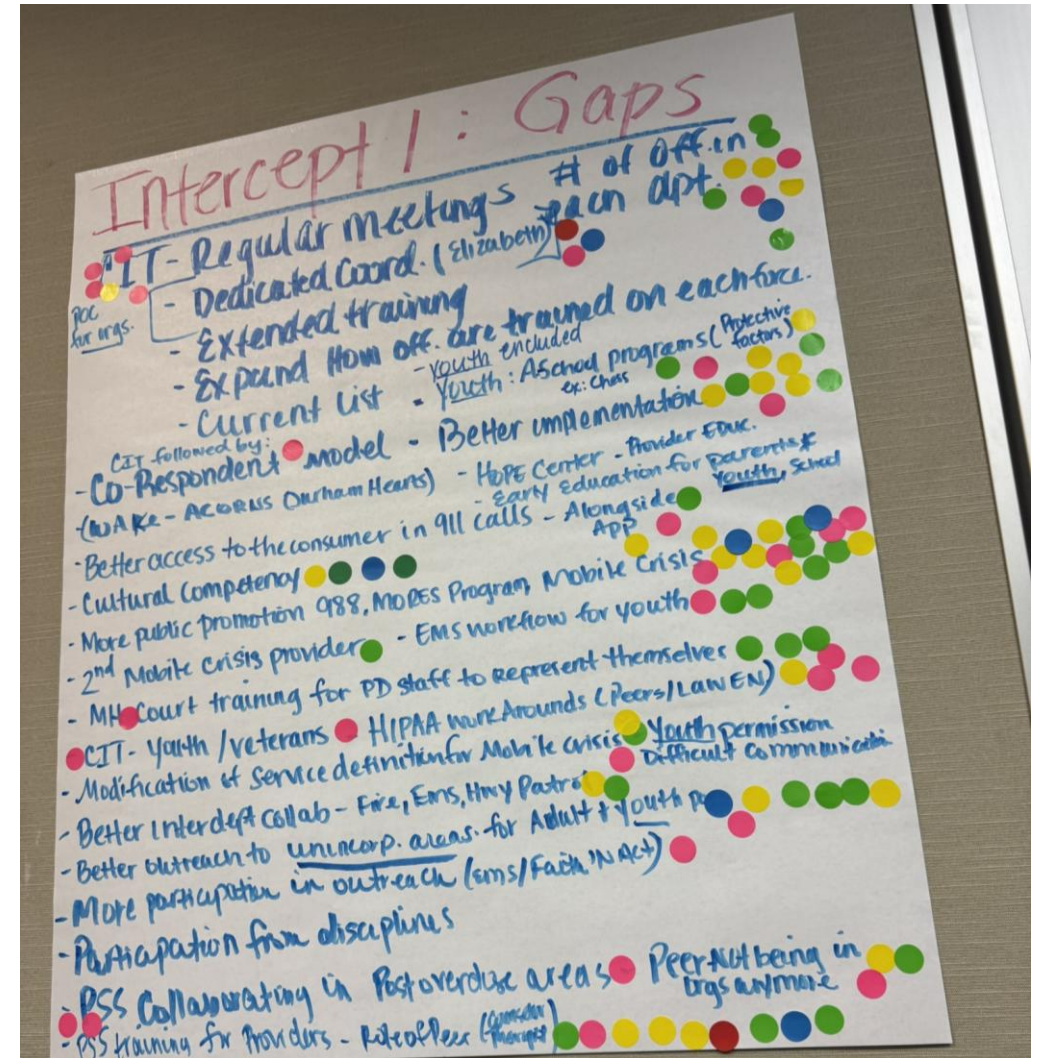 Intercept 1: Gaps
CIT - Regular meetings # of off. in each dpt.
POC for orgs.
- Dedicated Coord. (Elizabeth)
- Extended training
- Expand How off. are trained on each force.
- Current List - youth included
- Youth: ASchool programs (Protective factors)
ex: Chess
CIT followed by:
- Co-Respondent model - Better implementation
(WAKE - ACORNS Durham Hearts) - HOPE Center - Provider EDUC.
- Early Education for parents & Youth, School
- Better access to the consumer in 911 calls - Alongside App
- Cultural Competency
- More public promotion 988, MORES Program, Mobile Crisis
- 2nd Mobile crisis provider - EMS workflow for youth
- MH Court training for PD staff to represent themselves
CIT - Youth / veterans HIPAA work Arounds (Peers/Law EN)
- Modification of service definition for Mobile crisis Youth permission
Difficult communication
- Better Interdept collab - Fire, Ems, Hwy Patrol
- Better outreach to unincorp. areas. for Adult + youth
- More participation in outreach (ems/Faith 'N Act)
- Participation from disciplines
- PSS Collaborating in Post overdose areas Peer Not being in orgs anymore
- PSS training for Providers - Role of Peer